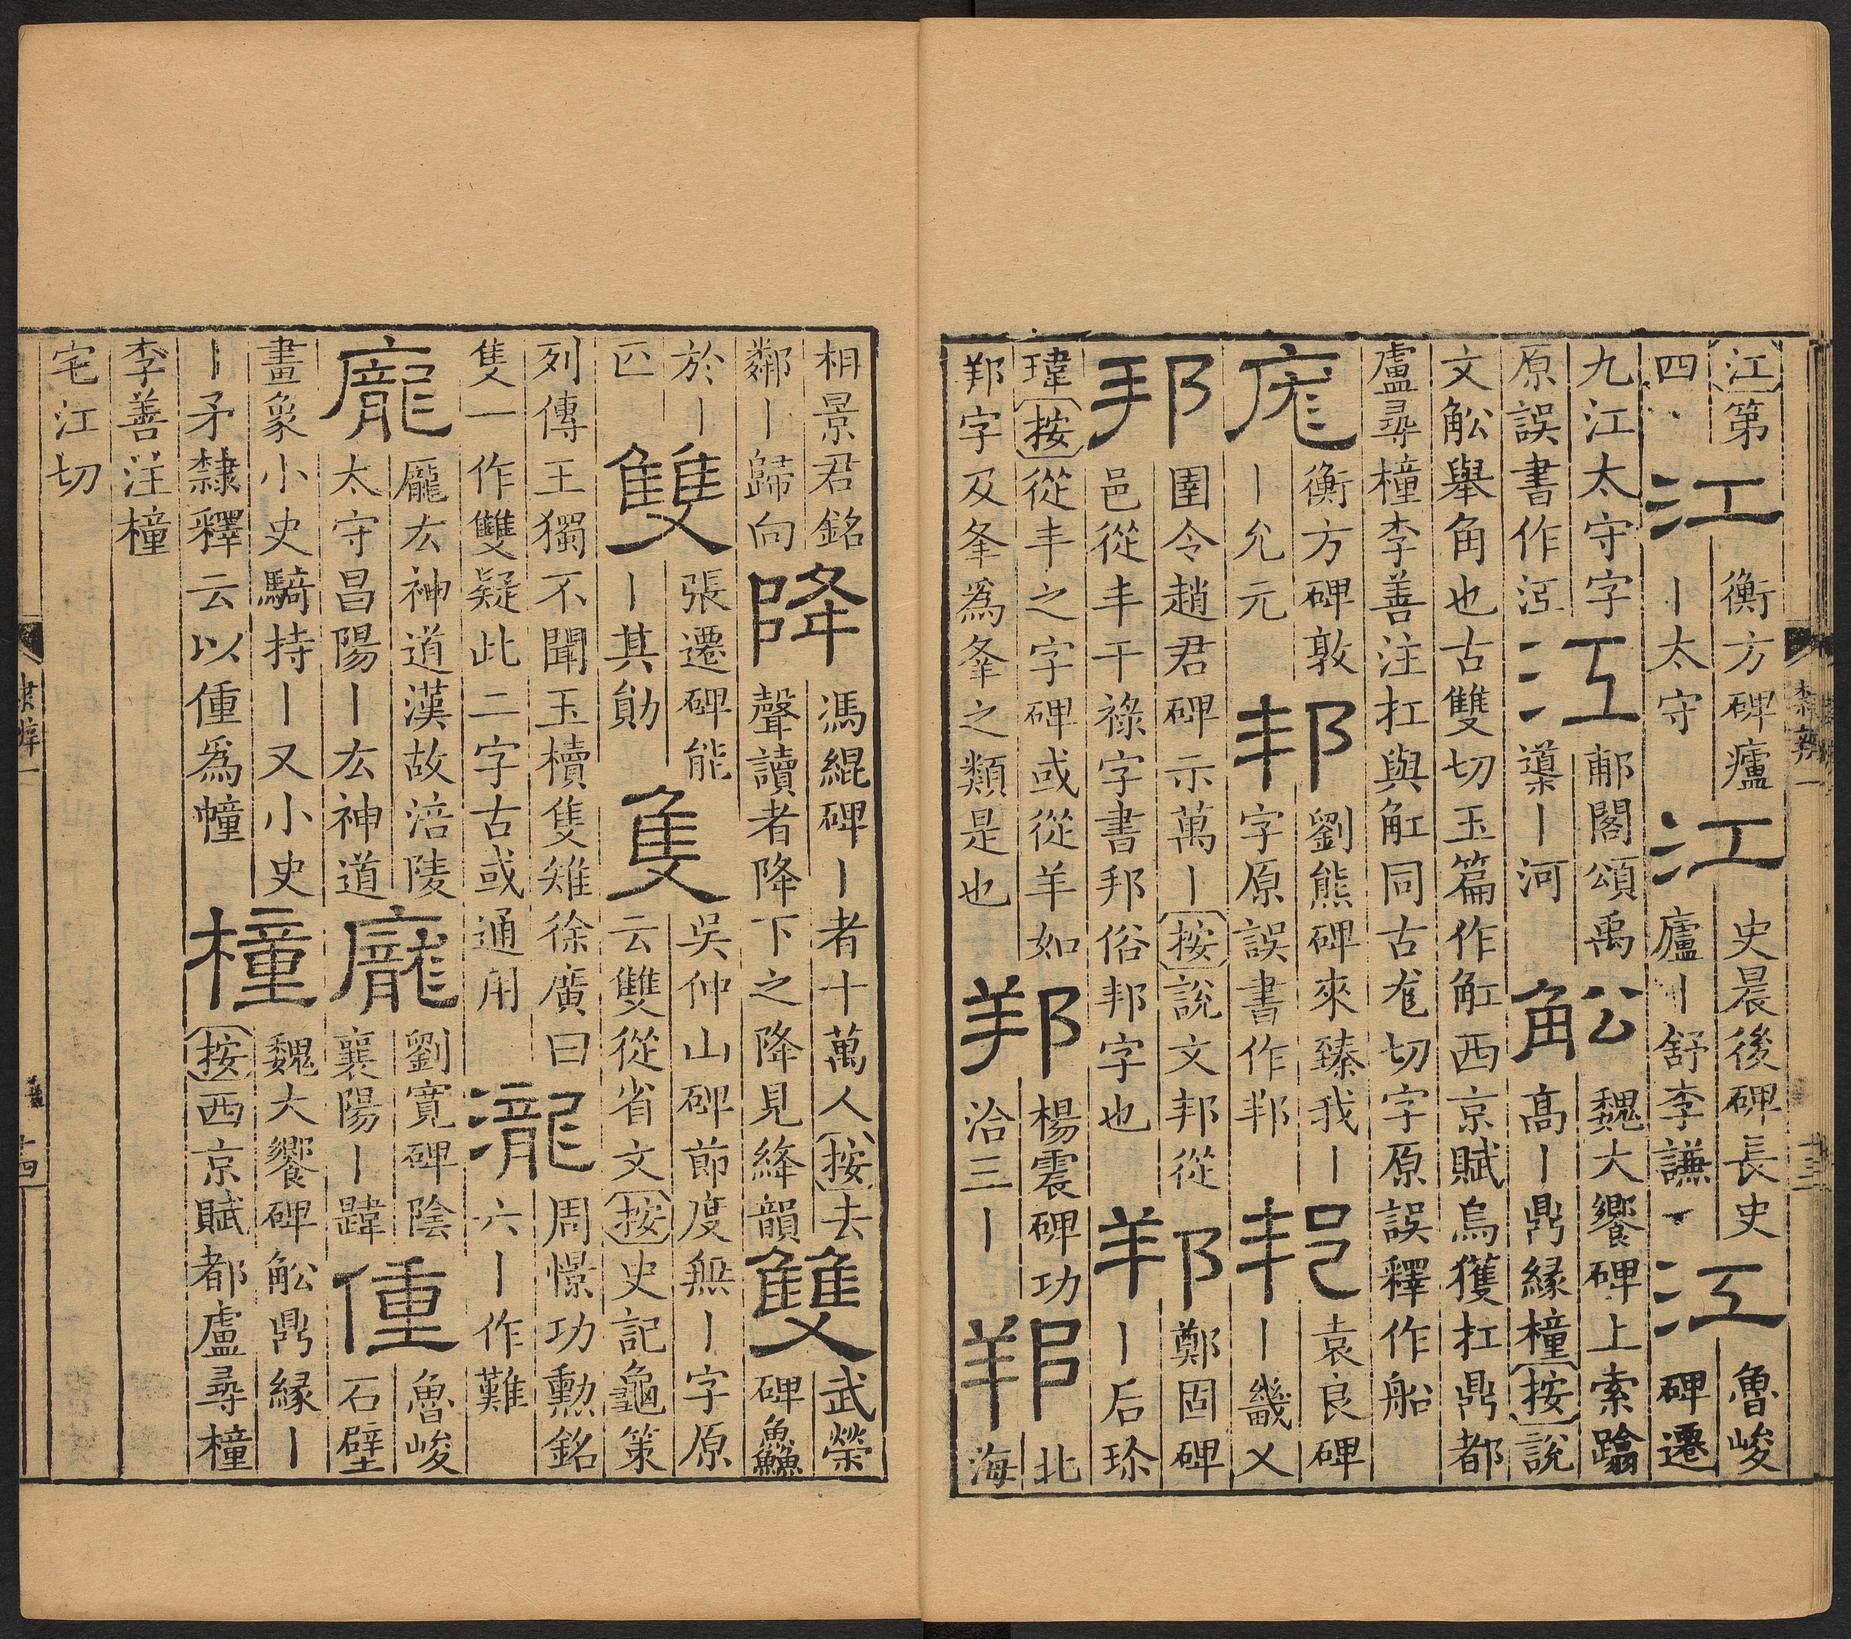 江第四江衡方碑廬丨太守江史晨後碑長史廬丨舒李謙江魯峻碑遷
九江太守字原誤書作泟江郙閣頌禹導丨河舩魏大饗碑上索蹹高丨鼎緣橦按說
文舩舉角也古雙切玉篇作舡西京賦烏獲扛鼎都盧尋橦李善注扛與舡同古尨切字原誤釋作船
庬衡方碑敦丨允元邦劉熊碑來臻我丨字原誤書作邦邦袁良碑丨畿乂
邦圉令趙君碑示萬丨按說文邦從邑從丰干祿字書邦俗邦字也邦鄭固碑丨后珍
瑋按從丰之字碑或從羊如邦字及夆爲夆之類是也邦楊震碑功洽三丨邦北海
隸辨一
相景君銘鄰丨歸向降馮緄碑丨者十萬人按去聲讀者降下之降見絳韻雙武榮碑鱻
於丨匹雙張遷碑能丨其勛隻吳仲山碑節度無丨字原云雙從省文按史記龜策
列傳王獨不聞玉櫝隻雉徐廣曰隻一作雙疑此二字古或通用瀧周憬功勳銘六丨作難
龐龐厷神道漢故涪陵太守昌陽丨厷神道龐劉寬碑陰襄陽丨韙僮魯峻石壁
畫象小史騎持丨又小史丨矛隸釋云以僮爲幢橦魏大饗碑舩鼎緣丨按西京賦都盧尋橦
李善注橦宅江切
隸辨一
十四